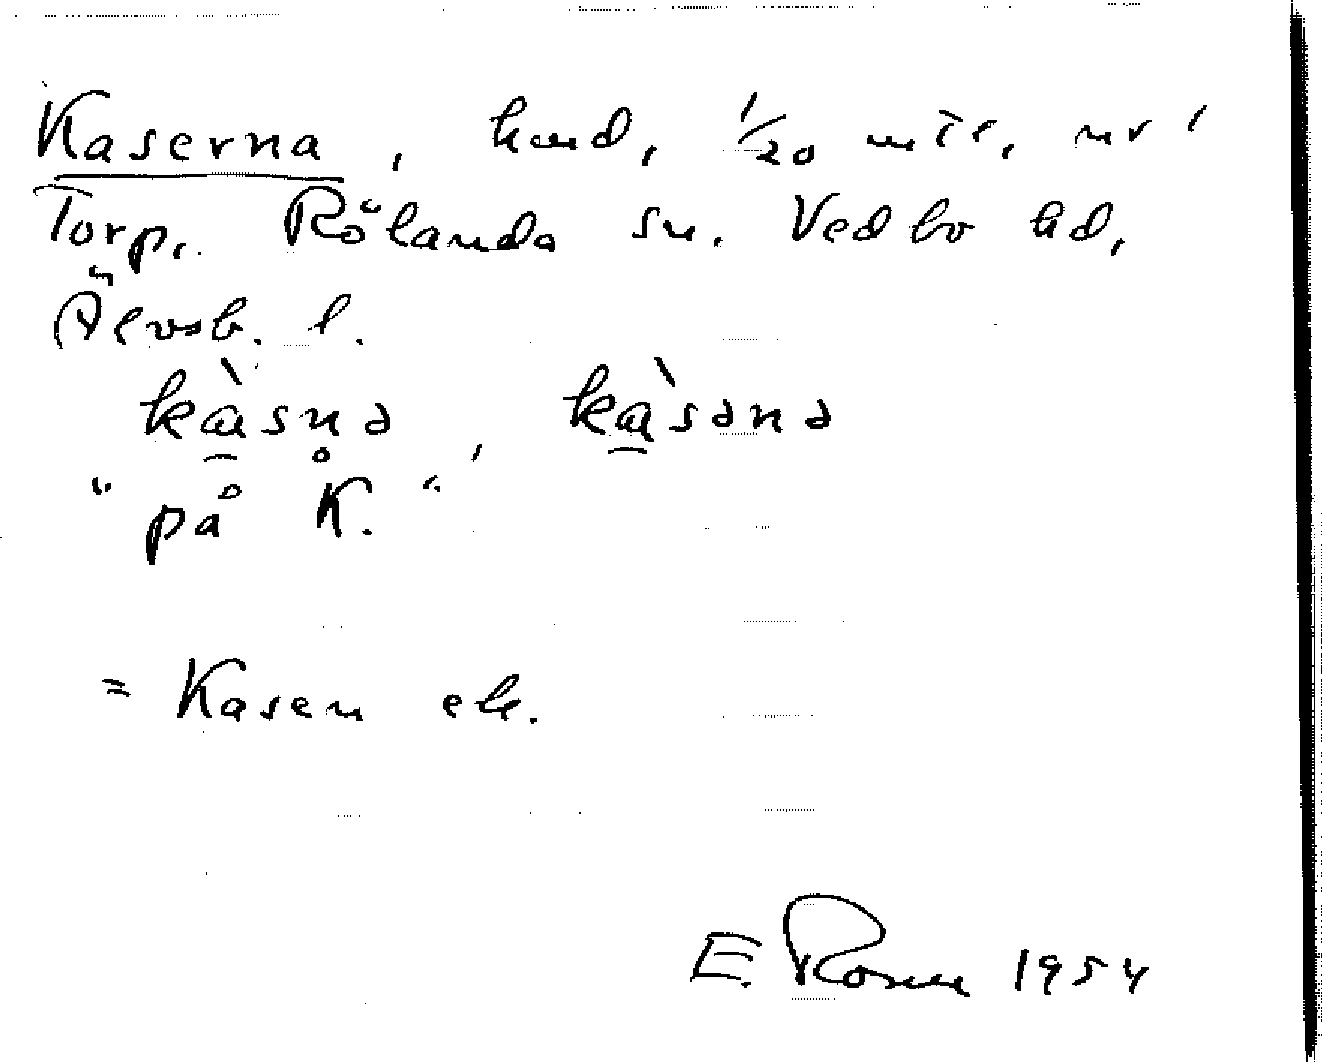 Kaserna, hmd, 1/20 mtl, nr 1
Torp, Rölanda sn. Vedbo hd,
Älvsb. l.
kàsnə, kàsənə
"på K."
= Kasen
E. Rosen 1954